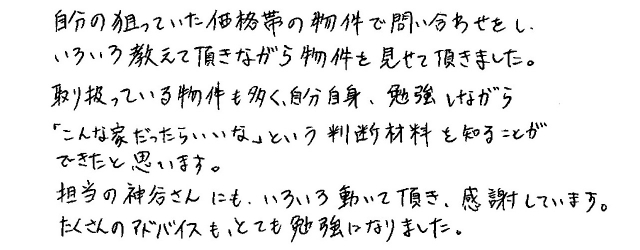 自分の狙っていた価格帯の物件で問い合わせをし、
いろいろ教えて頂きながら物件を見せて頂きました。
取り扱っている物件も多く、自分自身、勉強しながら
「こんな家だったらいいな」という判断材料を知ることが
できたと思います。
担当の神谷さんにも、いろいろ動いて頂き、感謝しています。
たくさんのアドバイスも、とても勉強になりました。